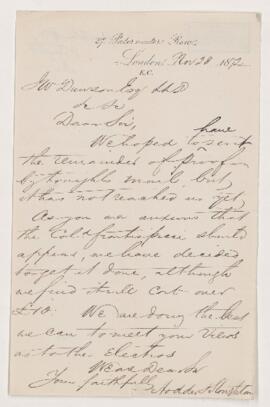 27 Paternoster Row,
London, Nov 28 1872
E.C.
JW Dawson Esq LLD
&c &c
Dear Sir,
We hoped to have send
the remainder of proof on
by tonights mail, but,
it has not reached us yet,
As you are anxious that
the Cold frontispiece should
appear, we have decided
to get it done, although
we find it will cost over
£10. We are doing the best
we can to meet your views
as to the Electros
We are Dear Sir
Yours faithfully
Hodder & Stoughton